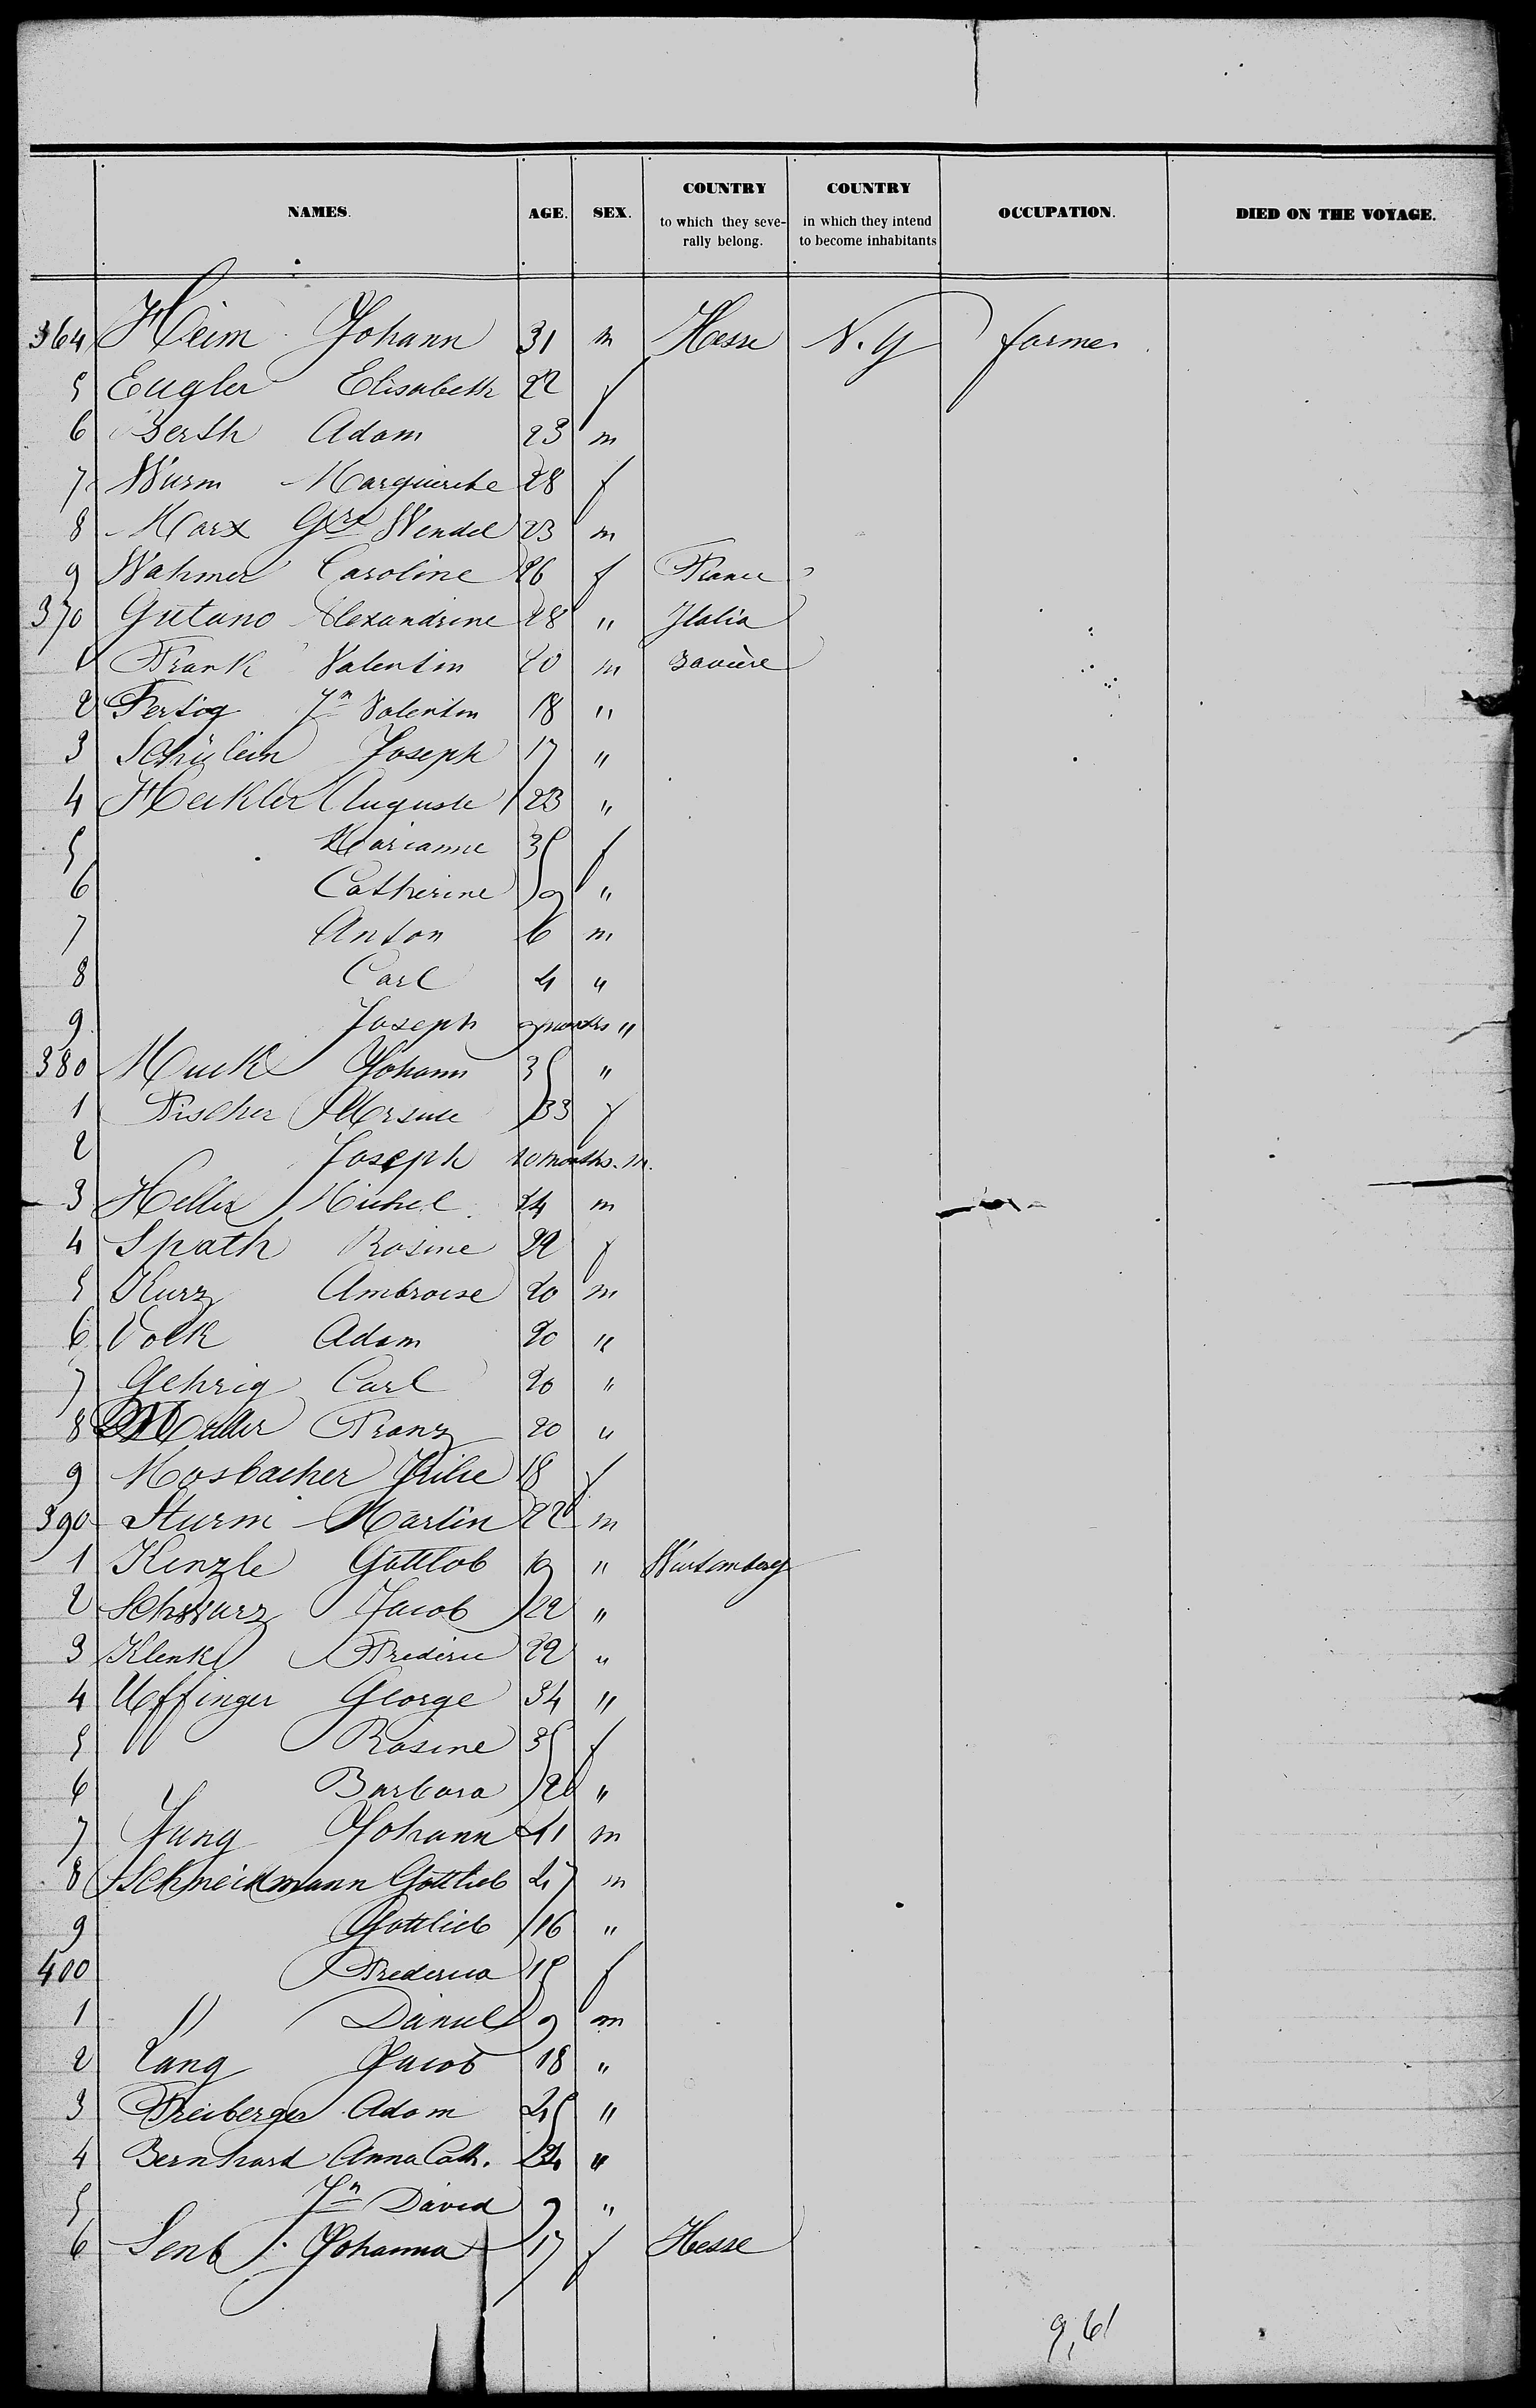 NAMES. AGE. SEX. COUNTRY to which they seve-rally belong. COUNTRY in which they intend to become inhabitants OCCUPATION. DIED ON THE VOYAGE.
364 Heim Johann 31 m Hesse N.Y farmer
5 Eugler Elisabeth 22 f
6 Berth Adam 23 m
7 Wurm Marguerite 28 f
8 Marx Gre Wendel 23 m
9 Wahmer Caroline 26 f France
370 Gutano Alexandrine 28 " Italia
1 Frank Valentin 20 m Bavière
2 Fertig Jn Valentin 18 "
3 Schülein Joseph 17 "
4 Heckler Auguste 23 "
5 Marianne 35 f
6 Catherine 9 "
7 Anton 6 m
8 Carl 4 "
9 Joseph 9 months "
380 Muck Johann 35 "
1 Fischer Ursule 33 f
2 Joseph 10 months. m.
3 Heller Michel 24 m
4 Spath Rosine 22 f
5 Kurz Ambroise 20 m
6 Volk Adam 20 "
7 Gehrig Carl 20 "
8 Müller Franz 20 "
9 Mosbacher Julie 18 f
390 Sturm Martin 22 m
1 Kinzle Gottlob 19 " Würtemberg
2 Schwarz Jacob 22 "
3 Klenk Frederic 22 "
4 Uffinger George 34 "
5 " Rosine 35 f
6 Barbara 26 "
7 Jung Johann 41 m
8 Schneidmann Gottlieb 47 m
9 Gottlieb 16 "
400 Frederica 15 f
1 " Daniel 9 m
2 Lang Jacob 18 "
3 Freiberger Adam 25 "
4 Bernhard Anna Cath. 24 "
5 Jn David 9 "
6 Senb Johanna 17 f Hesse
9,61